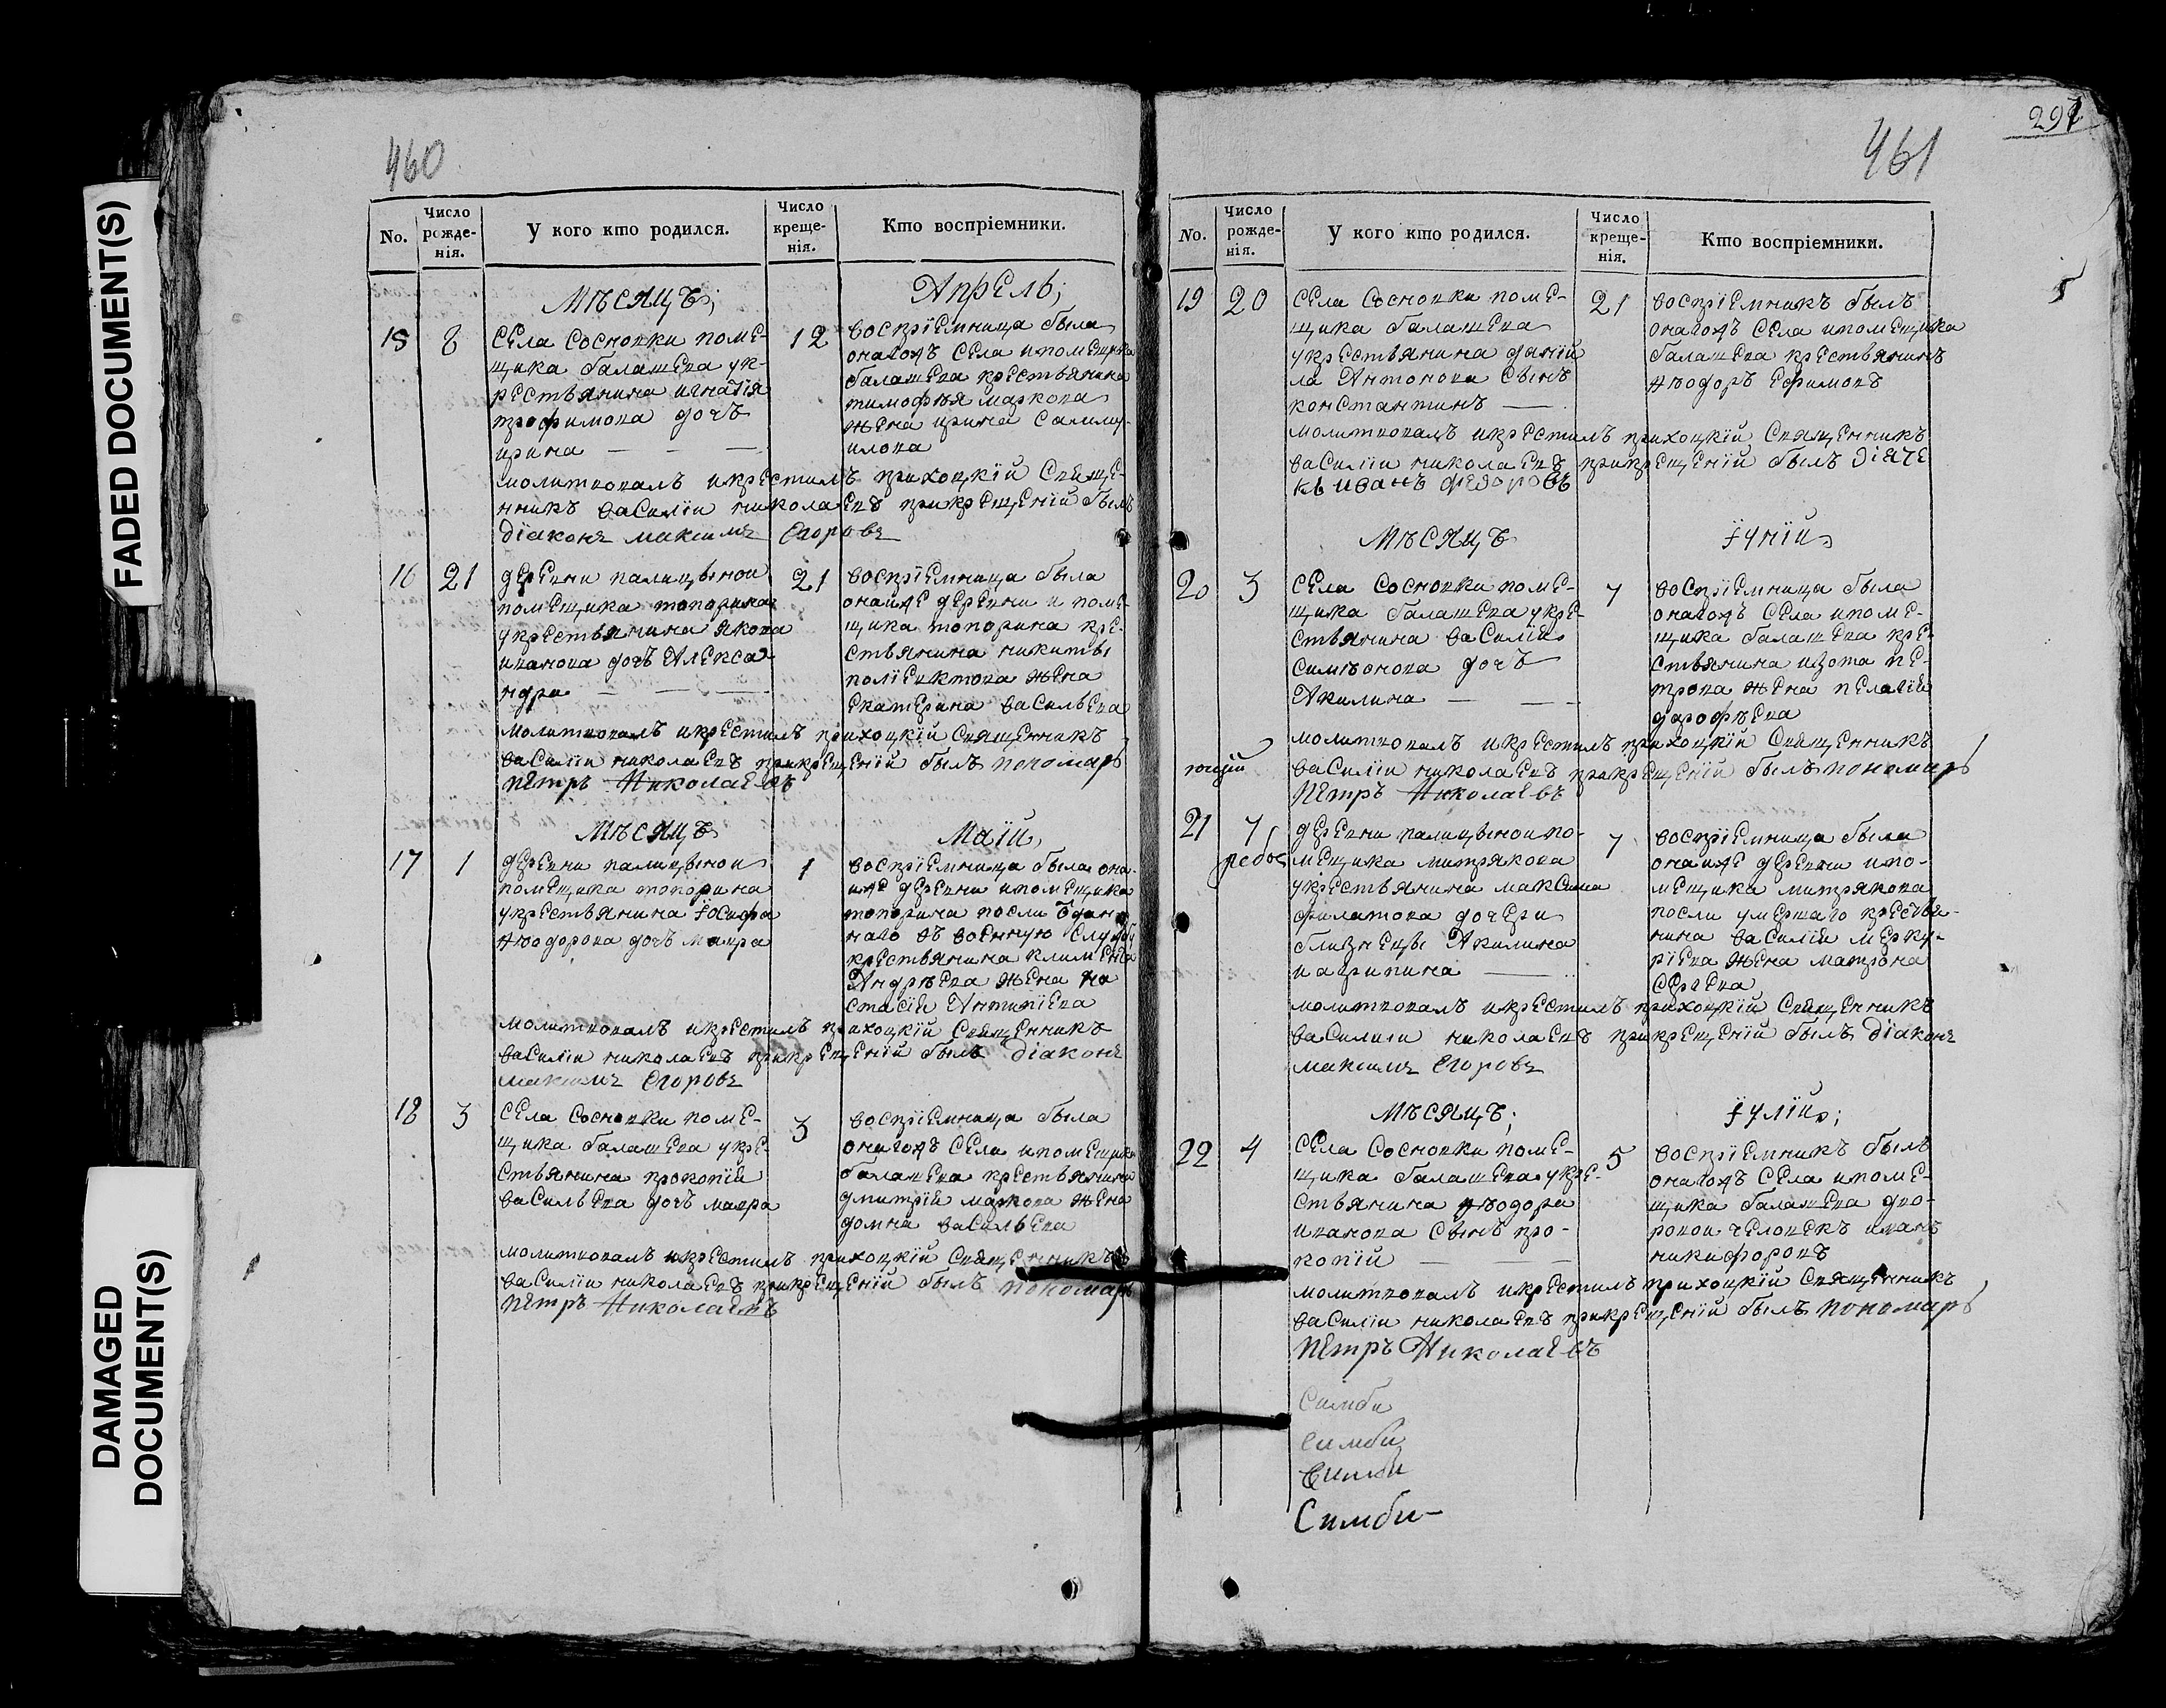 FADED DOCUMENT(S)
DAMAGED
DOCUMENT(S)
460
No.
Число
рожде-
нія.
У кого кто родился.
Число
креще-
нія.
Кто воспріемники.
Мѣсяцъ;
Апрель;
15
8
села Сосновки поме-
щика балашева у к-
рестьянина игнатія
трофимова дочь
ирина — — —
12
воспріемница была
оногожъ села и помещика
балашева крестьянина
тимофѣя маркова
жена ирина самму-
илова
молитвовалъ и крестилъ прихоцкій Свяще-
нникъ василіи николаевъ прикрещеній былъ
діаконъ максимъ Егоровъ
16
21
деревни палицыной
помещика топорина
у крестьянина якова
иванова дочь Алекса-
ндра — — —
21
воспріемница была
онойже деревни и поме-
щика топорина кре-
стьянина никиты
поліевктова жена
екатерина васильева
молитвовалъ и крестилъ прихоцкій Священникъ
василіи николаевъ прикрещеній былъ пономарь
Петръ Николаевъ
Мѣсяцъ
Маій
17
1
деревни палицыной
помещика топорина
у крестьянина іосифа
Ѳѣодорова дочь мавра
1
воспріемница была оно-
йже деревни и помещика
топорина посли ѿдан-
наго въ военную службу
крестьянина климента
Андрѣева жена на-
стасія Антипіева
молитвовалъ и крестилъ прихоцкій Священникъ
василіи николаевъ прикрещеній былъ діаконъ
максимъ Егоровъ
18
3
села Сосновки поме-
щика балашева у кре-
стьянина прокопій
васильева дочь мавра
3
воспріемница была
оногожъ села и помещика
балашева крестьянина
дмитрій маркова жена
домна васильева
молитвовалъ и крестилъ прихоцкій Священникъ
василіи николаевъ прикрещеній былъ пономарь
Петръ Николаевъ
461
297
No.
Число
рожде-
нія.
У кого кто родился.
Число
креще-
нія.
Кто воспріемники.
19
20
села Сосновки поме-
щика балашева
у крестьянина даній
ла Антонова сынъ
константинъ —
21
воспріемникъ былъ
оногожъ села и помещика
балашева крестьянинъ
Ѳѣодоръ ефимовъ
молитвовалъ и крестилъ прихоцкій Священникъ
василіи николаевъ прикрещеній былъ діяче
къ иванъ федоровъ
Мѣсяцъ
іуній
20
3
села Сосновки поме-
щика балашева у кре-
стьянина василій
симѣонова дочь
Акилина — —
7
воспріемница была
оногожъ села и поме-
щика балашева кре-
стьянина изота пе-
трова жена пелагія
дарофѣева
молитвовалъ и крестилъ прихоцкій Священникъ
василіи николаевъ прикрещеній былъ пономарь
Петръ Николаевъ
21
7
деревни палицыной по-
мещика митрякова
у крестьянина максима
филатова дочери
близнецы Акилина
и агрипина —
7
воспріемница была
онойже деревни и по-
мещика митрякова
посли умершаго крестья-
нина василій мерку-
ріева жена матрона
сергеева
молитвовалъ и крестилъ прихоцкій Священникъ
василии николаевъ прикрещеній былъ діаконъ
максимъ Егоровъ
Мѣсяцъ;
іулій;
22
4
села Сосновки поме-
щика балашева у кре-
стьянина Ѳѣодора
иванова сынъ про-
копій — —
5
воспріемникъ былъ
оногожъ села и поме-
щика балашева дво-
ровои человекъ иванъ
никифоровъ
молитвовалъ и крестилъ прихоцкій Священникъ
василіи николаевъ прикрещеній былъ пономарь
Петръ Николаевъ
Симби
симби
Симби
Симби-